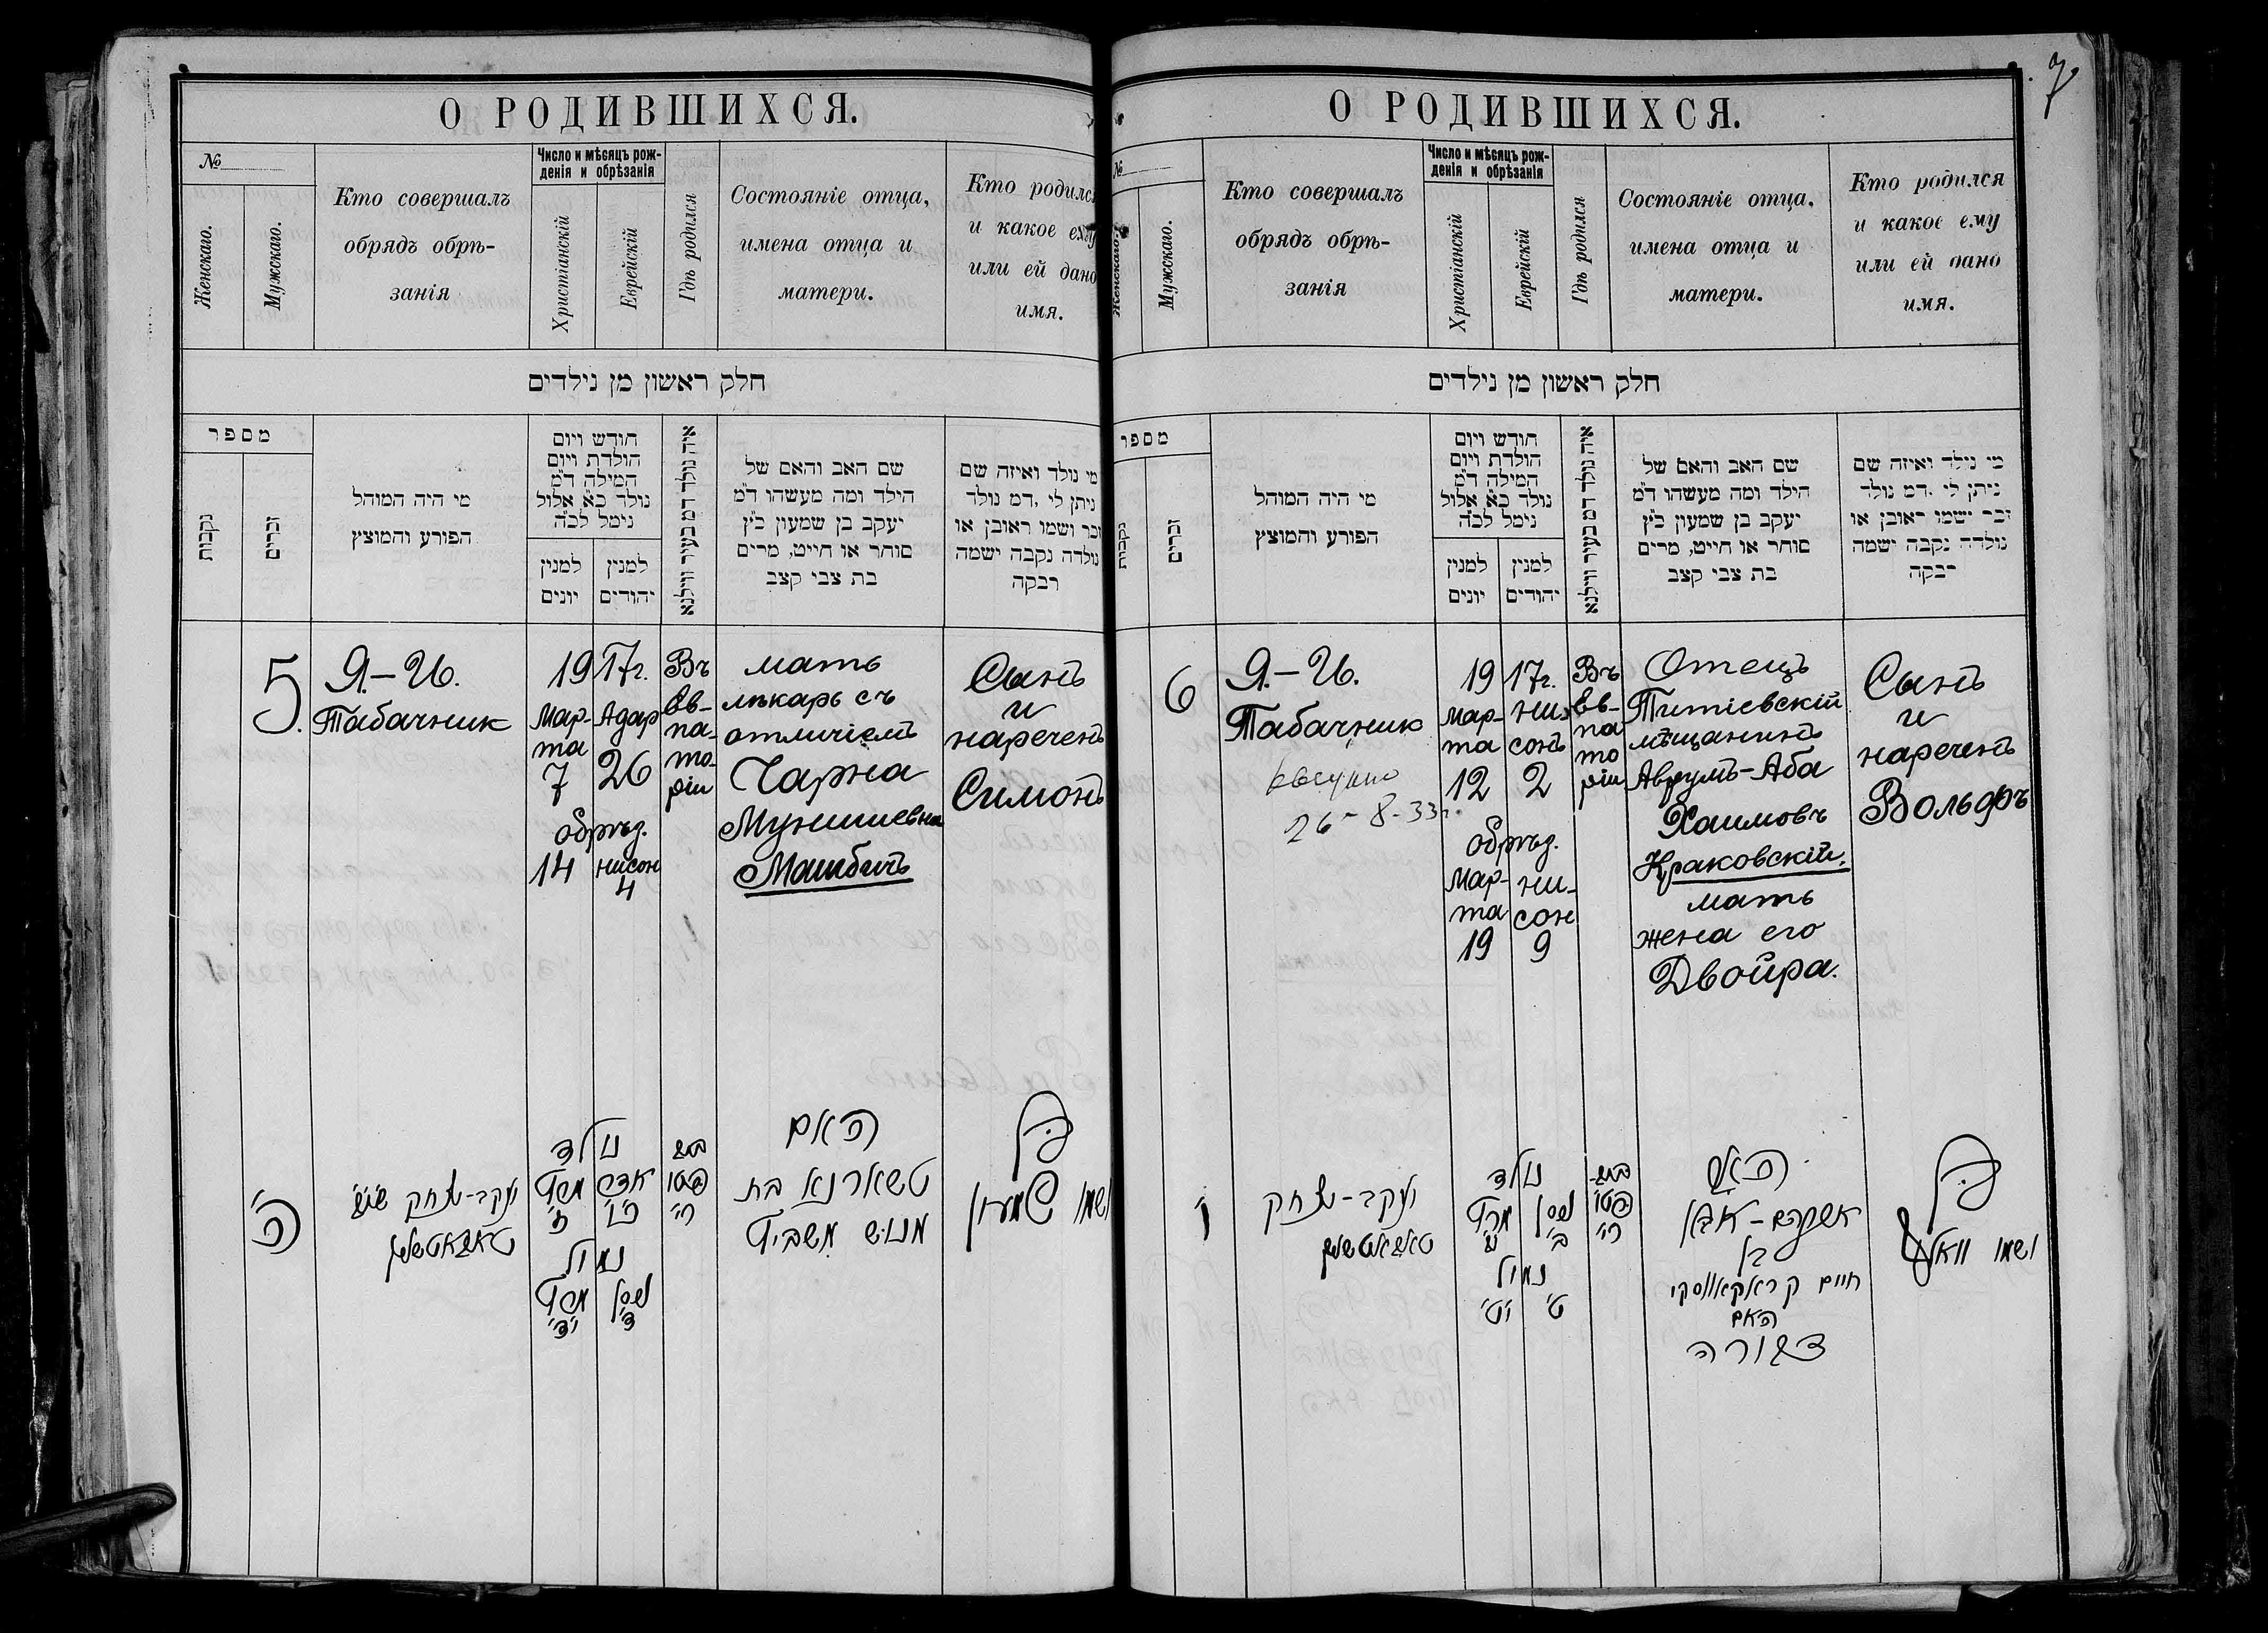 7
О РОДИВШИХСЯ.
№
Женскаго.
Мужскаго.
Кто совершалъ
обрядъ обрѣ-
занія
Число и мѣсяцъ рож-
денія и обрѣзанія
Христіанскій
Еврейскій
Гдѣ родился
Состояніе отца,
имена отца и
матери.
Кто родился
и какое ему
или ей дано
имя.
חלק ראשון מן נילדים
מספר
נקבות
זכרים
מי היה המוהל
הפורע והמוצץ
חודש ויום
הולדת ויום
המילה ד״מ
נולד כ״א אלול
נימל לכ״ה
למנין
יונים
למנין
יהודים
איה נולד דמ בעיר ווילנא
שם האב והאם של
הילד ומה מעשהו ד״מ
יעקב בן שמעון כ״ץ
סוחר או חייט, מרים
בת צבי קצב
מי נולד ואיזה שם
ניתן לי .דמ נולד
זכר ושמו ראובן או
נולדה נקבה ישמה
רבקה
5.
Я.-И.
Табачник
1917г.
Мар-
та
7
Адар
26
обрѣз.
14
нисон
4
Въ
Ев-
па-
то-
ріи
мать
лѣкарь съ
отличіемъ
Чарна
Мунишевна
Машбичъ
Сынъ
и
нареченъ
Симонъ
ה׳
יעקב-יצחק
טאבאטשניק
נולד
מרץ
ז׳
אדר
כ״ו
נימול
מרץ
י״ד
ניסן
ד׳
האם
טשארנא בת
מוניש משביץ
בן
ושמו שמעון
О РОДИВШИХСЯ.
№
Женскаго.
Мужскаго.
Кто совершалъ
обрядъ обрѣ-
занія
Число и мѣсяцъ рож-
денія и обрѣзанія
Христіанскій
Еврейскій
Гдѣ родился
Состояніе отца,
имена отца и
матери.
Кто родился
и какое ему
или ей дано
имя.
חלק ראשון מן נילדים
מספר
נקבות
זכרים
מי היה המוהל
הפורע והמוצץ
חודש ויום
הולדת ויום
המילה ד״מ
נולד כ״א אלול
נימל לכ״ה
למנין
יונים
למנין
יהודים
איה נולד דמ בעיר ווילנא
שם האב והאם של
הילד ומה מעשהו ד״מ
יעקב בן שמעון כ״ץ
סוחר או חייט, מרים
בת צבי קצב
מי נולד ואיזה שם
ניתן לי .דמ נולד
זכר ישמו ראובן או
נולדה נקבה ישמה
רבקה
6
Я.-И.
Табачник
26-8-33г.
1917г.
мар-
та
12
ни-
сонъ
2
обрѣз.
Мар-
та
19
ни-
сон
9
Въ
Ев-
па
то
ріи
Отецъ
Титіевскій
мѣщанинъ
Аврумъ-Аба
Хаимовъ
Краковскій.
мать
жена его
Двойра.
Сынъ
и
нареченъ
Вольфъ
ו׳
יעקב-יצחק
טאבאטשניק
נולד
מרץ
י״ב
ניסן
ב׳
נימול
י״ט
ט׳
האב
אברהם-אבא
בן
חיים קראקאווסקי
האם
דבורה
בן
ושמו וואלף